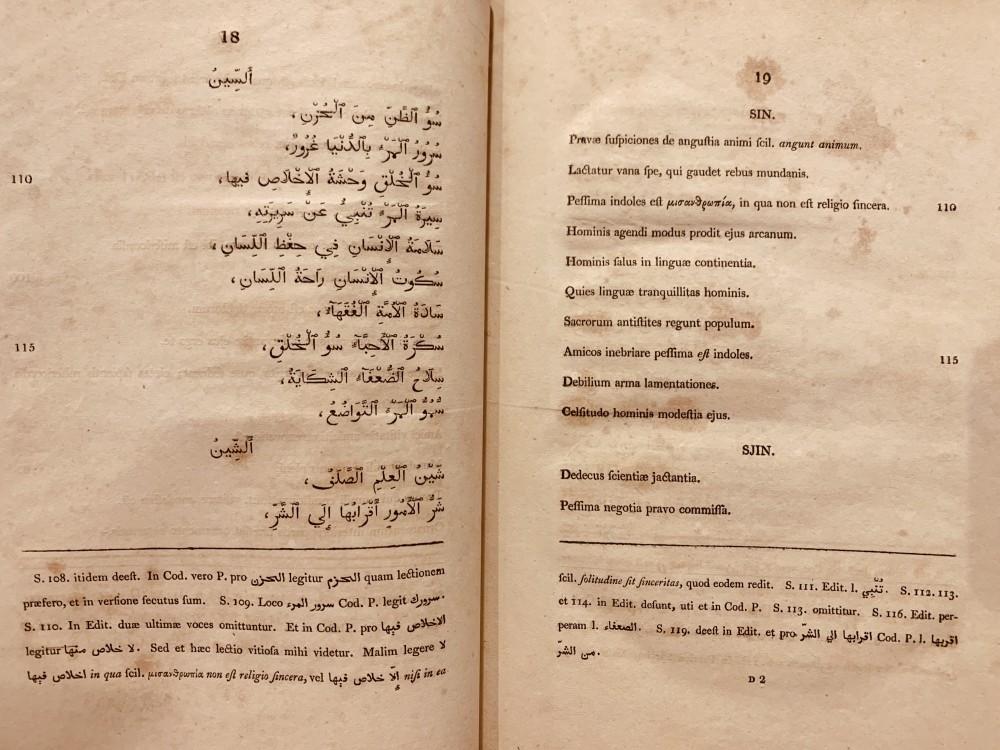 18
أَلسِّينُ
سُوُّ ٱلظَّنِّ مِنَ ٱلْحُزْنِ،
سُرُورُ ٱلْمَرْءِ بِٱلدُّنْيَا غُرُورٌ،
110 سُوُّ ٱلْخُلْقِ وَحْشَةُ ٱلْاخْلَاصِ فِيهَا،
سِيرَةُ ٱلْمَرْءِ تُنْبِيُّ عَنْ سَرِيرَتِهِ،
سَلَامَةُ ٱلْانْسَانِ فِي حِفْظِ ٱللِّسَانِ،
سُكُوتُ ٱلْانْسَانِ رَاحَةُ ٱللِّسَانِ،
سَادَةُ ٱلْاُمَّةِ ٱلْفُقَهَآءُ،
115 سُكْرَةُ ٱلْاَحِبَّآءِ سُوُّ ٱلْخُلْقِ،
سِلَاحُ ٱلضُّعَفَآءِ ٱلشِّكَايَةُ،
سُمُوُّ ٱلْمَرْءِ ٱلتَّوَاضُعُ،
أَلشِّينُ
شَيْنُ ٱلْعِلْمِ ٱلصَّلَفُ،
شَرُّ ٱلْاُمُورِ أَقْرَابُهَا إِلَي ٱلشَّرِّ،
S. 108. itidem deeſt. In Cod. vero P. pro الحزن legitur الحزم quam lectionem
præfero, et in verſione ſecutus ſum. S. 109. Loco سرور المرء Cod. P. legit سرورك.
S. 110. In Edit. duæ ultimæ voces omittuntur. Et in Cod. P. pro الاخلاص فيها
legitur لا خلاص منها. Sed et hæc lectio vitioſa mihi videtur. Malim legere لا
اخلاص فيها in qua ſcil. μισανθρωπία non eſt religio ſincera, vel إلّا خلاص فيها niſi in ea
19
SIN.
Pravæ ſuſpiciones de anguſtia animi ſcil. angunt animum.
Lactatur vana ſpe, qui gaudet rebus mundanis.
Peſſima indoles eſt μισανθρωπία, in qua non eſt religio ſincera. 110
Hominis agendi modus prodit ejus arcanum.
Hominis ſalus in linguæ continentia.
Quies linguæ tranquillitas hominis.
Sacrorum antiſtites regunt populum.
Amicos inebriare peſſima eſt indoles. 115
Debilium arma lamentationes.
Celſitudo hominis modeſtia ejus.
SJIN.
Dedecus ſcientiæ jactantia.
Peſſima negotia pravo commiſſa.
ſcil. ſolitudine ſit ſinceritas, quod eodem redit. S. 111. Edit. l. تُنْبِيُّ. S. 112. 113.
et 114. in Edit. deſunt, uti et in Cod. P. S. 113. omittitur. S. 116. Edit. per-
peram l. الصعفاء. S. 119. deeſt in Edit. et pro اقرابها الي الشرّ Cod. P. l. اقربها
من الشرّ.
D 2